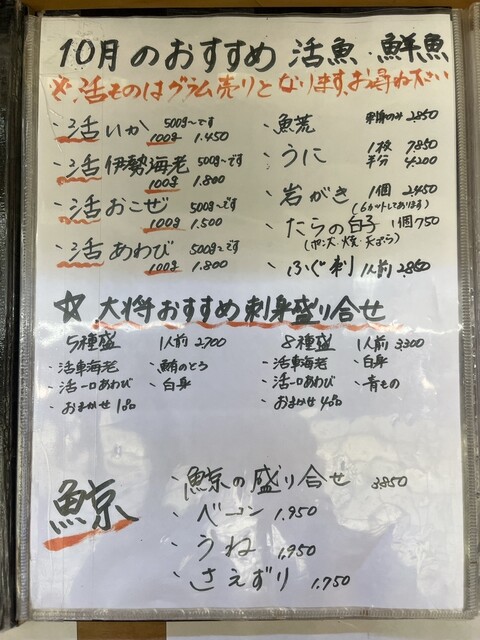 10月のおすすめ 活魚・鮮魚
※活ものはグラム売りとなります。お尋ね下さい
・活いか 500g〜です 100g 1.450
・活伊勢海老 500g〜です 100g 1.800
・活おこぜ 500g〜です 100g 1.500
・活あわび 500g〜です 100g 1.800
・魚荒 刺身のみ 2.850
・うに 1枚 7850 半分 4.200
・岩がき 1個 2,450
(6カットしてあります)
・たらの白子 1個750
(ポン大・焼・天ぷら)
・ふぐ刺 1人前 2.860
☆大将おすすめ刺身盛り合せ
5種盛 1人前 2,700
・活車海老 ・鮪のとろ
・活一口あわび ・白身
・おまかせ1品
8種盛 1人前 3,300
・活車海老 ・白身
・活一口あわび ・青もの
・おまかせ4品
鯨
・鯨の盛り合せ 3.850
・ベーコン 1.950
・うね 1,950
・さえずり 1.750